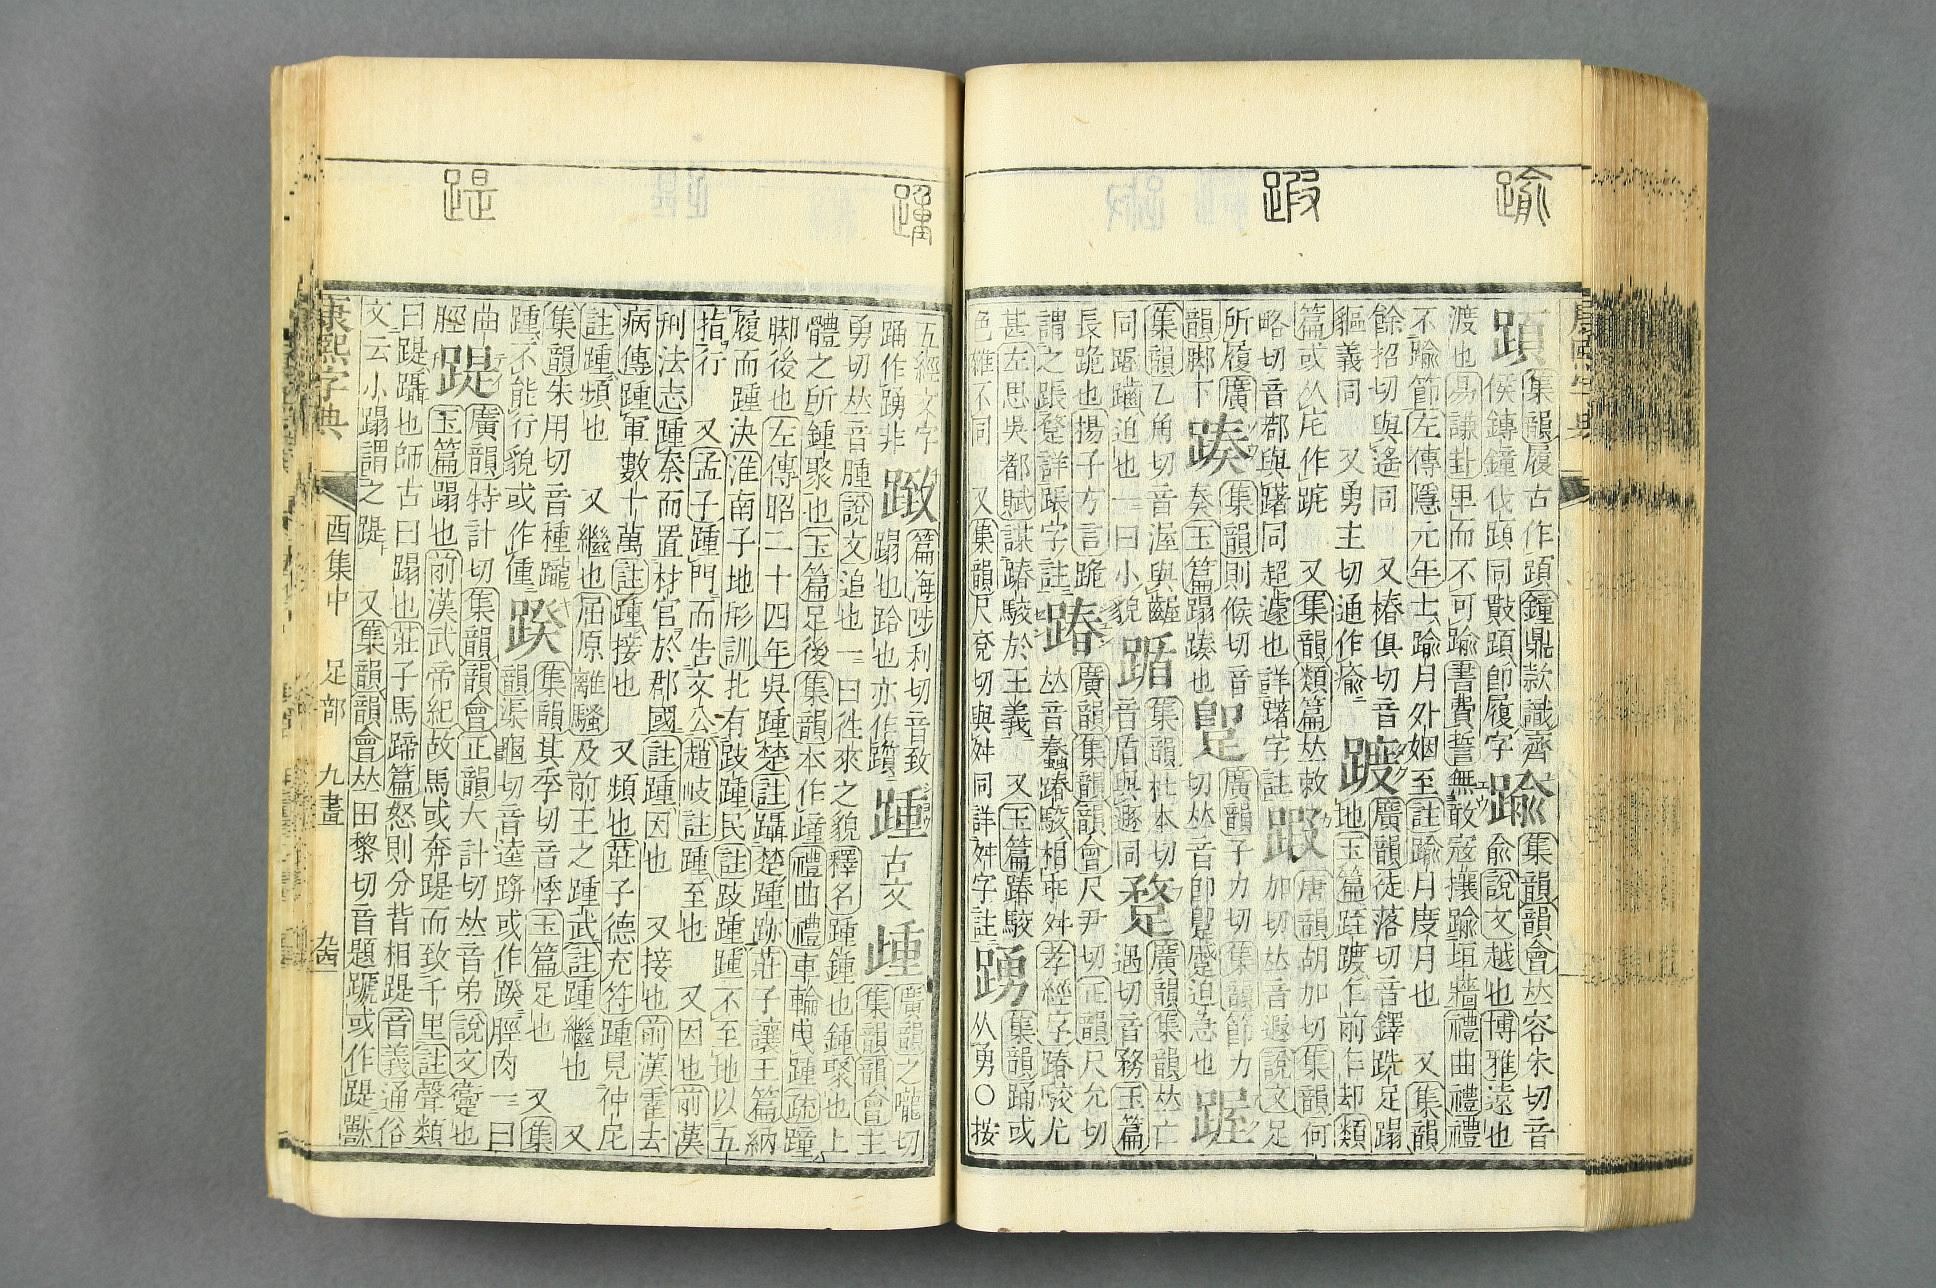 踰
康熙字典
集韻履古作頙鐘鼎款識齊
侯鏄鐘伐頙同㪚頙卽履字
踰
集韻韻會𠀤容朱切音
兪說文越也博雅遠也
渡也易謙卦𤰞而不可踰書費誓無敢寇攘踰垣牆禮曲禮禮
不踰節左傳隱元年士踰月外姻至註踰月度月也 又集韻
餘招切與遙同 又椿俱切音
貙義同 又勇主切通作瘉
踱
廣韻徒落切音鐸跣足蹋
地玉篇跮踱乍前乍却類
篇或从㡯作 又集韻類篇𠀤敕
略切音 與躇同超遽也詳躇字註
唐韻胡加切集韻何
加切𠀤音遐說文足
所履廣
韻脚下
集韻則候切音
奏玉篇蹋 也
廣韻子力切集韻節力
切𠀤音卽 蹙迫急也
集韻乙角切音渥與齷
同 迫也一曰小貌
集韻杜本切
音盾與遯同
廣韻集韻𠀤亡
遇切音務玉篇
長跪也揚子方言跪
謂之 詳 字註
踳
廣韻集韻韻會尺尹切正韻尺允切
𠀤音蠢踳駮相乖舛孝經序踳駮尤
甚左思吳都賦謀踳駮於王義 又玉篇踳駮
色雜不同 又集韻尺兗切與舛同詳舛字註
踴
集韻踊或
从勇〇按
踵
踶
五經文字
踊作踴非
篇海陟利切音致
蹋也跲也亦作躓
踵
古文
歱
廣韻之隴切
集韻韻會主
勇切𠀤音腫說文追也一曰徃來之貌釋名踵鍾也鍾聚也上
體之所鍾聚也玉篇足後集韻本作歱禮曲禮車輪曳踵疏踵
脚後也左傳昭二十四年吳踵楚註躡楚踵跡莊子讓王篇納
履而踵決淮南子地形訓北有跂踵民註跂踵踵不至地以五
指行 又孟子踵門而告文公趙岐註踵至也 又因也前漢
刑法志踵秦而置材官於郡國註踵因也 又接也前漢霍去
病傳踵軍數十萬註踵接也 又頻也莊子德充符踵見仲尼
註踵頻也 又繼也屈原離騷及前王之踵武註踵繼也 又
集韻朱用切音種躘
踵不能行貌或作偅
踤
集韻其季切音悸玉篇足也 又集
韻渠龜切音逵 或作 脛肉一曰
曲
脛
踶
廣韻特計切集韻韻會正韻大計切𠀤音弟說文躗也
玉篇蹋也前漢武帝紀故馬或奔踶而致千里註聲類
曰踶躡也師古曰蹋也莊子馬蹄篇怒則分背相踶音義通俗
文云小蹋謂之踶 又集韻韻會𠀤田黎切音題蹏或作踶獸
康熙字典 酉集中 足部 九畫